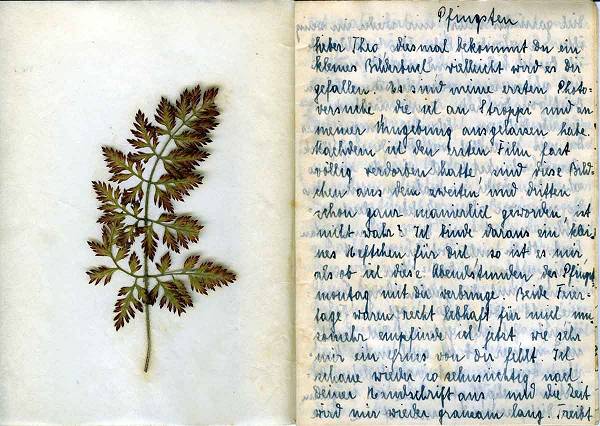 Pfingsten
lieber Theo, diesmal bekommst du ein
kleines Bilderbuch vielleicht wird es dir
gefallen. Es sind meine ersten Photo-
versuche die ich an Stroppi und an
meiner Umgebung ausgelassen habe.
Nachdem ich den ersten Film fast
völlig verdorben hatte sind diese Bild-
chen aus dem zweiten und dritten
schon ganz manierlich geworden, ist
nicht wahr? Ich binde daraus ein klei-
nes Heftchen für dich so ist es mir,
als ob ich diese Abendstunden des Pfingst-
montag mit dir verbringe. Beide Feier-
tage waren recht lebhaft für mich um
somehr empfinde ich jetzt wie sehr
mir ein Gruss von dir fehlt. Ich
schaue wieder so sehnsüchtig nach
deiner Handschrift aus und die Zeit
wird mir wieder grausam lang. Treibt